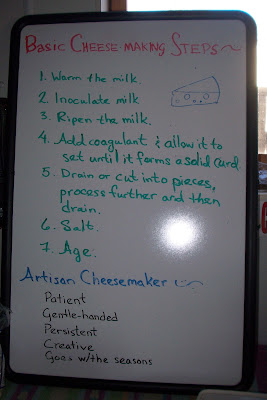 BASIC CHEESE-MAKING STEPS
1. Warm the milk.
2. Inoculate milk
3. Ripen the milk.
4. Add coagulant & allow it to
set until it forms a solid curd.
5. Drain or cut into pieces,
process further and then
drain.
6. Salt.
7. Age.
Artisan Cheesemaker
Patient
Gentle-handed
Persistent
Creative
Goes w/the seasons